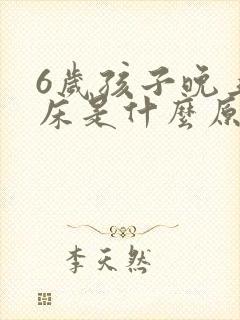 6歲孩子晚
床是什麼原
李天然